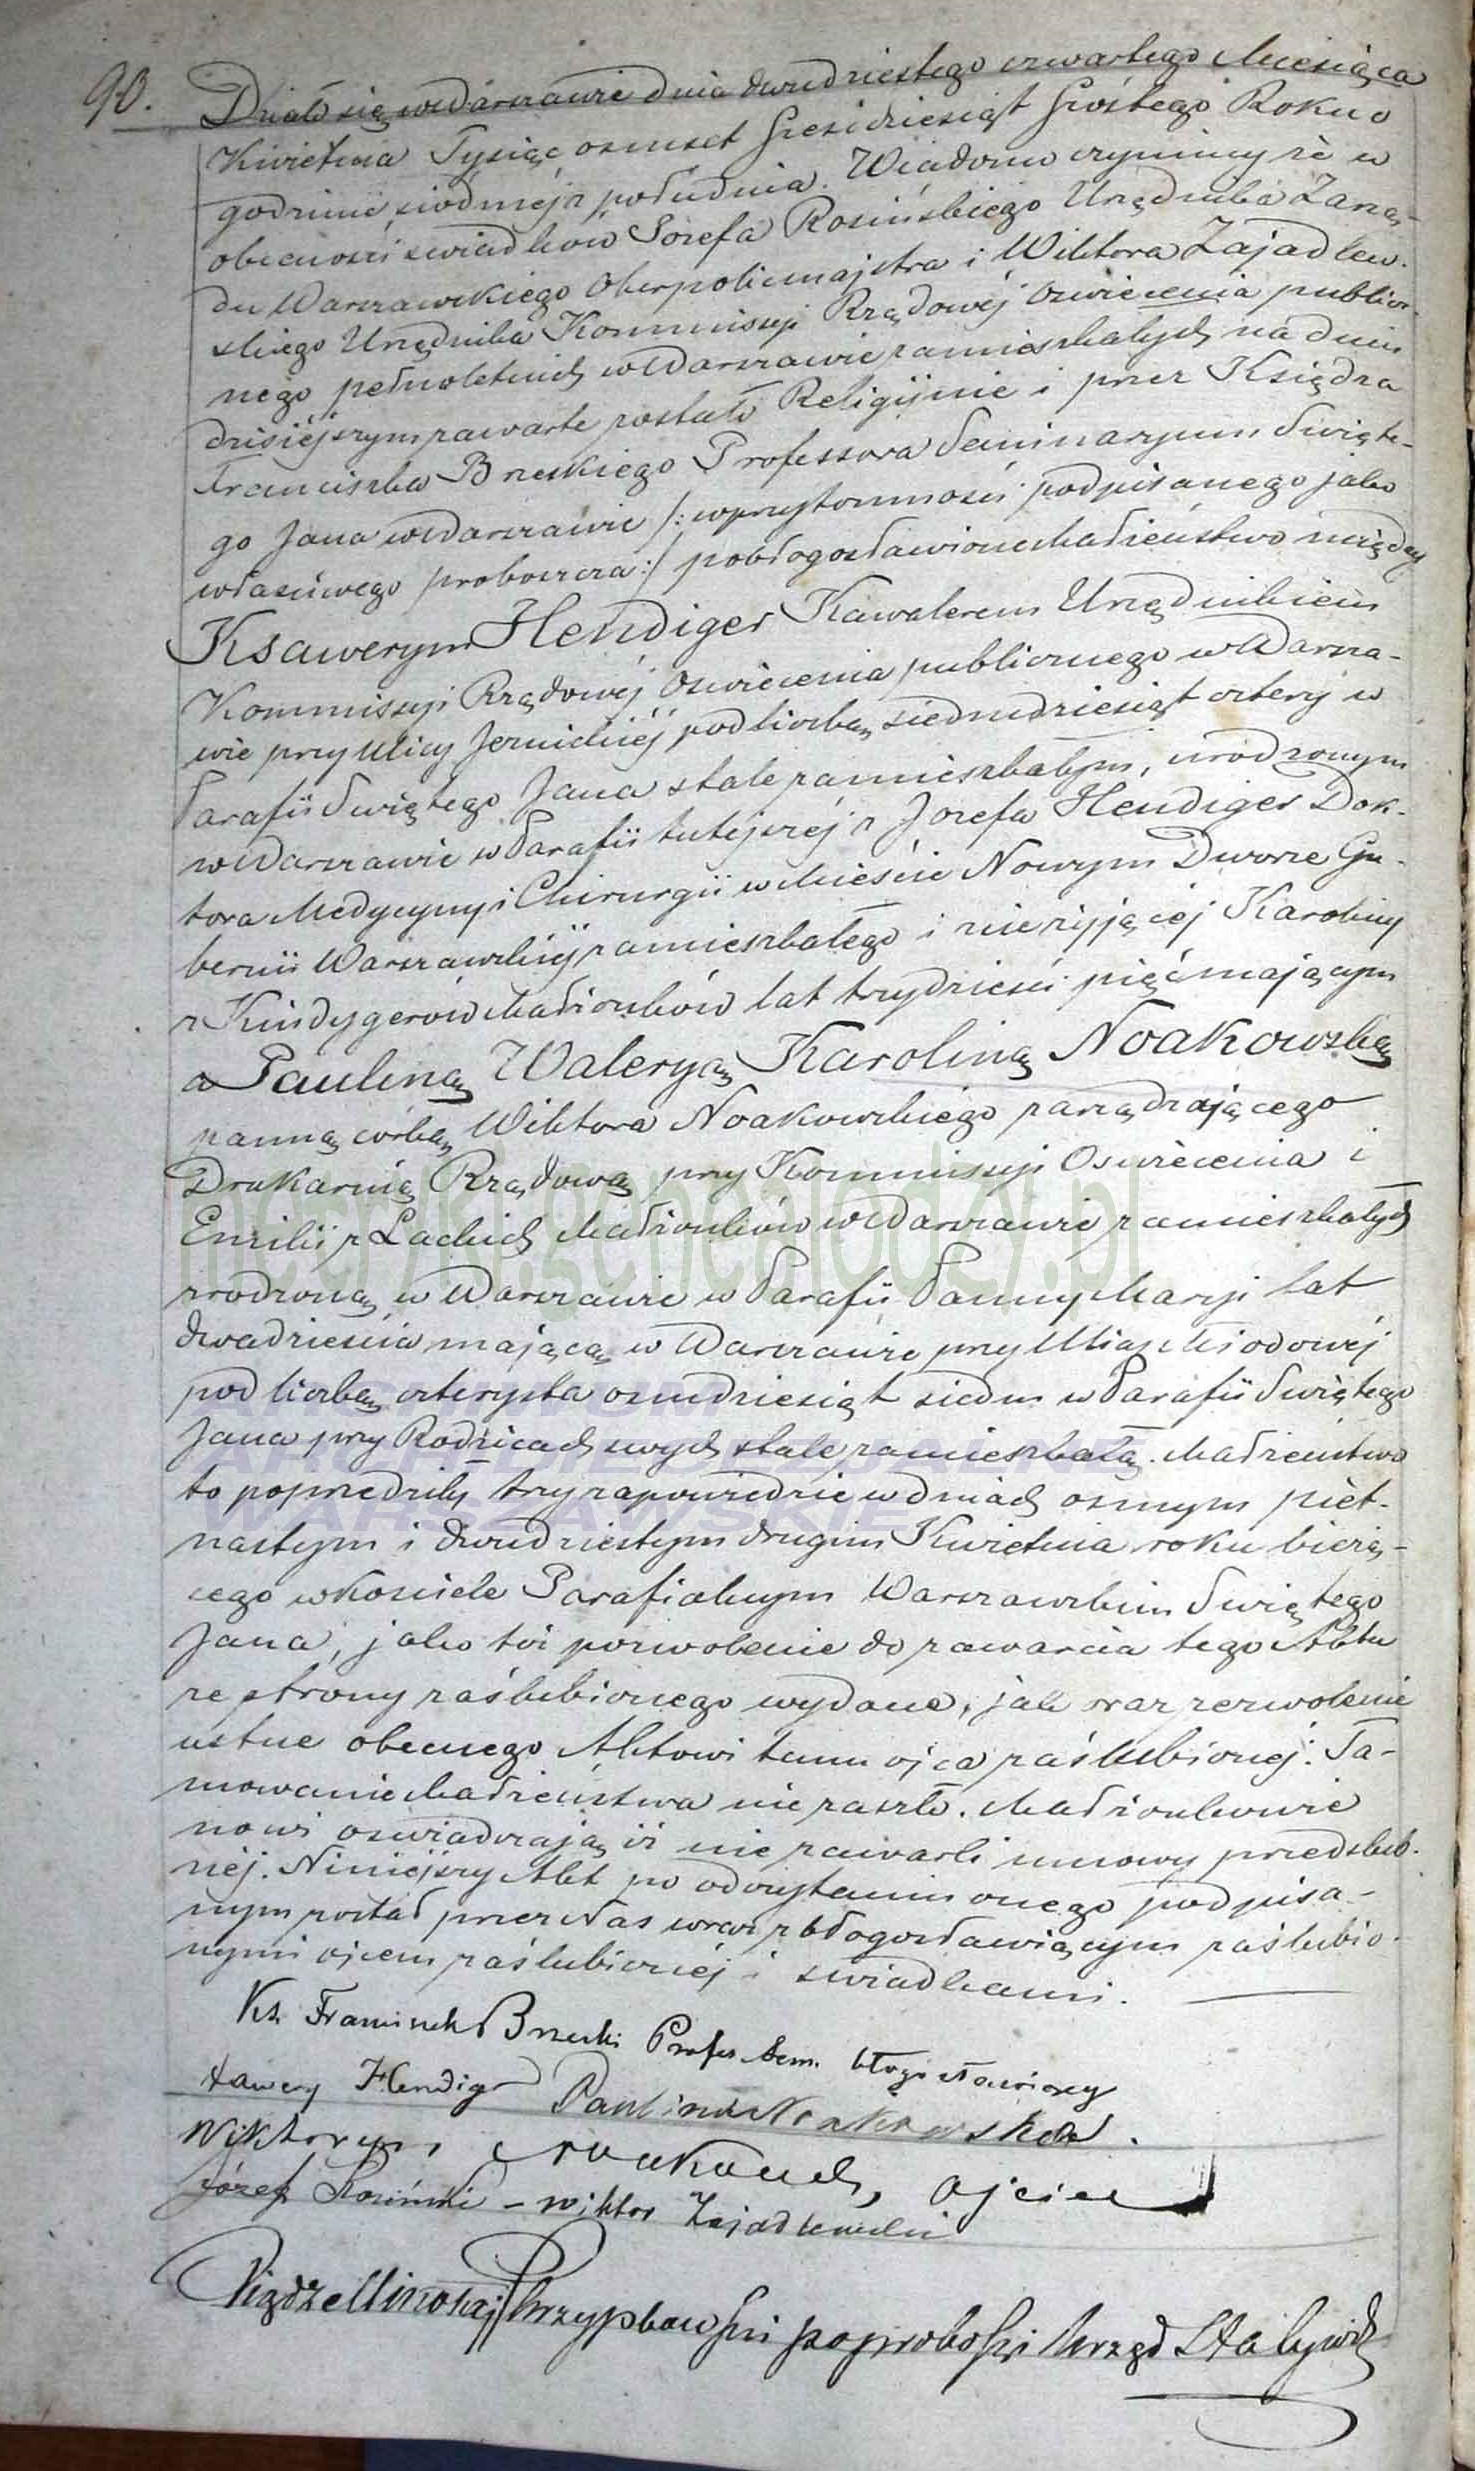 90. Działo się w Warszawie dnia dwudziestego czwartego Miesiąca
Kwietnia Tysiąc osmset sześćdziesiąt szóstego Roku o
godzinie siódméj z południa. Wiadomo czynimy że w
obecności świadków Józefa Rosińskiego Urzędnika Zarzą-
du Warszawskiego Oberpolicmajstra i Wiktora Zajadlew-
skiego Urzędnika Kommissyi Rządowéj Oświecenia publicz-
nego pełnoletnich w Warszawie zamieszkałych na dniu
dzisiéjszym zawarte zostało Religijnie i przez Księdza
Franciszka Brzeskiego Professora Seminaryum Święte-
go Jana w Warszawie /: w przytomności podpisanego jako
właściwego proboszcza :/ pobłogosławione Małżeństwo między
Ksawerym Hendiger Kawalerem Urzędnikiem
Kommissyi Rządowéj Oświecenia publicznego w Warsza-
wie przy Ulicy Jezuickiéj pod liczbą siedmdziesiąt cztery w
Parafii Świętego Jana stale zamieszkałym, urodzonym
w Warszawie w Parafii tutejszéj z Józefa Hendiger Dok-
tora Medycyny i Chirurgii w Mieście Nowym Dworze Gu-
bernii Warszawskiéj zamieszkałego i nieżyjącej Karoliny
z Kindygerów Małżonków lat trzydzieści pięć mającym
a Pauliną Waleryą Karoliną Noakowską
panną córką Wiktora Noakowskiego zarządzającego
Drukarnią Rządową przy Kommissyi Oświecenia i
Emilii z Lackich Małżonków w Warszawie zamieszkałych
zrodzoną w Warszawie w Parafii Panny Maryi lat
dwadzieścia mającą w Warszawie przy Ulicy Miodowéj
pod liczbą czterysta osmdziesiąt siedm w Parafii Świętego
Jana przy Rodzicach swych stale zamieszkałą. Małżeństwo
to poprzedziły trzy zapowiedzie w dniach osmym piet-
nastym i dwudziestym drugim Kwietnia roku bieżą-
cego w kościele Parafialnym Warszawskim Świętego
Jana, jako też pozwolenie do zawarcia tego Aktu
ze strony zaślubionego wydane, jak oraz zezwolenie
ustne obecnego Aktowi temu ojca zaślubionéj. Ta-
mowanie Małżeństwa nie zaszło. Małżonkowie
nowi oświadczają iż nie zawarli umowy przedślub-
néj. Niniejszy Akt po odczytaniu onego podpisa-
nym został przez Nas wraz z błogosławiącym zaślubio-
nymi ojcem zaślubionéj i świadkami.
Ks. Franciszek Brzeski Profes. Sem. błogosławiący
Xawery Hendiger Paulina Noakowska.
Wiktoryn Noakowski, ojciec
Józef Rosiński – Wiktor Zajadlewski
Xiądz Mikołaj Skrzypkowski
metryki.genealodzy.pl
ARCHIWUM
ARCHIDIECEZJALNE
WARSZAWSKIE